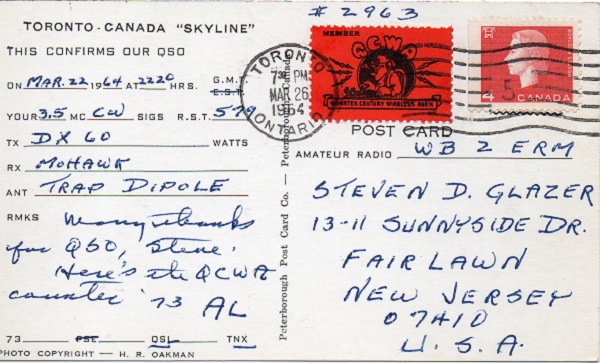 # 2963
TORONTO - CANADA "SKYLINE"
THIS CONFIRMS OUR QSO
ON MAR. 22 1964 AT 2220 HRS. G.M.T. E.S.T.
YOUR 3.5 MC CW SIGS R.S.T. 579
TX DX 60 WATTS
RX MOHAWK
ANT TRAP DIPOLE
RMKS Many thanks
for QSO, Steve.
Here's the QCWA
counter '73 AL
73 PSE QSL TNX
PHOTO COPYRIGHT — H. R. OAKMAN
Peterborough Post Card Co. — Peterborough, Canada
TORONTO
7 30 PM
MAR 26
1964
ONTARIO
MEMBER
QCWA
QUARTER CENTURY WIRELESS ASSN.
4 CANADA
5
POST CARD
AMATEUR RADIO WB 2 ERM
STEVEN D. GLAZER
13-11 SUNNYSIDE DR.
FAIR LAWN
NEW JERSEY
07410
U. S. A.